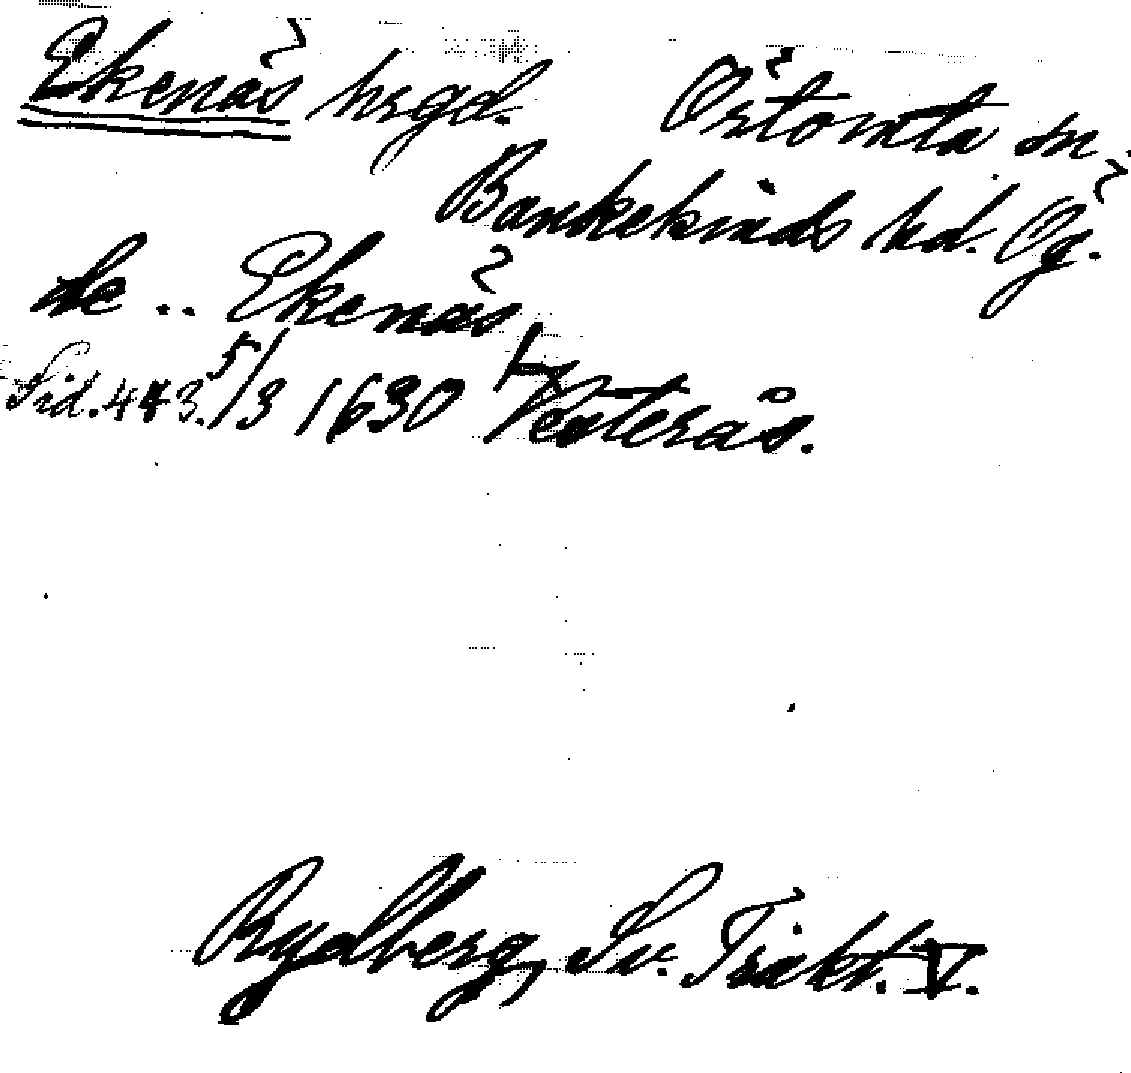 Ekenäs hrgd. Östomta sn.
Bankekinds hd. Ög.
de .. Ekenäs
Sid. 443. 5/3 1630 Vesterås.
Rydberg, Sv. Trakt. V.